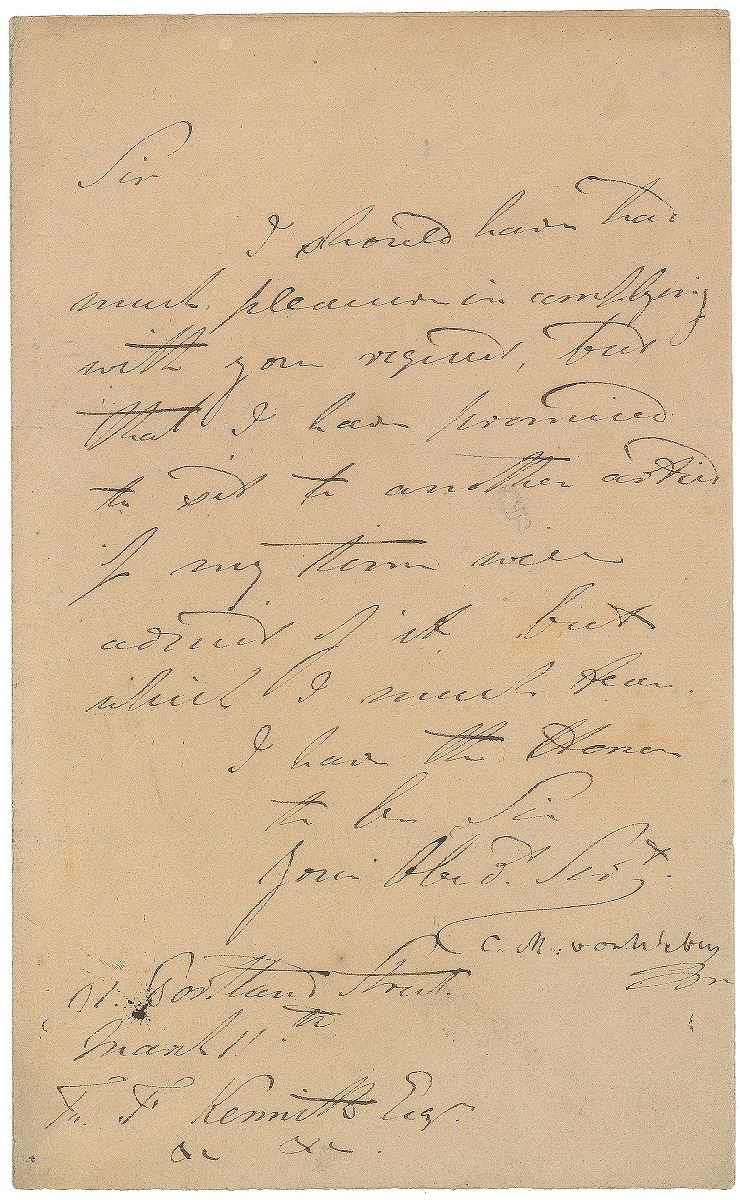 Sir
I should have had
much pleasure in complying
with your request, but
that I have promised
to sit to another artist
if my time will
admit of it but
which I much fear.
I have the Honor
to be Sir
your Obed.t Serv.t
C. M. von Weber
91. Portland Street.
March 11.th
F. Kennith Esq.r
&c &c.